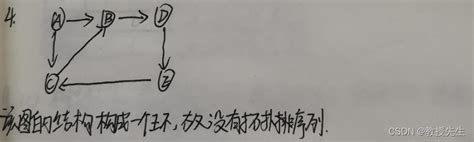 4.
A B D
C E
该图的内结构构成一个环,故没有拓扑排序列.
CSDN @教授先生